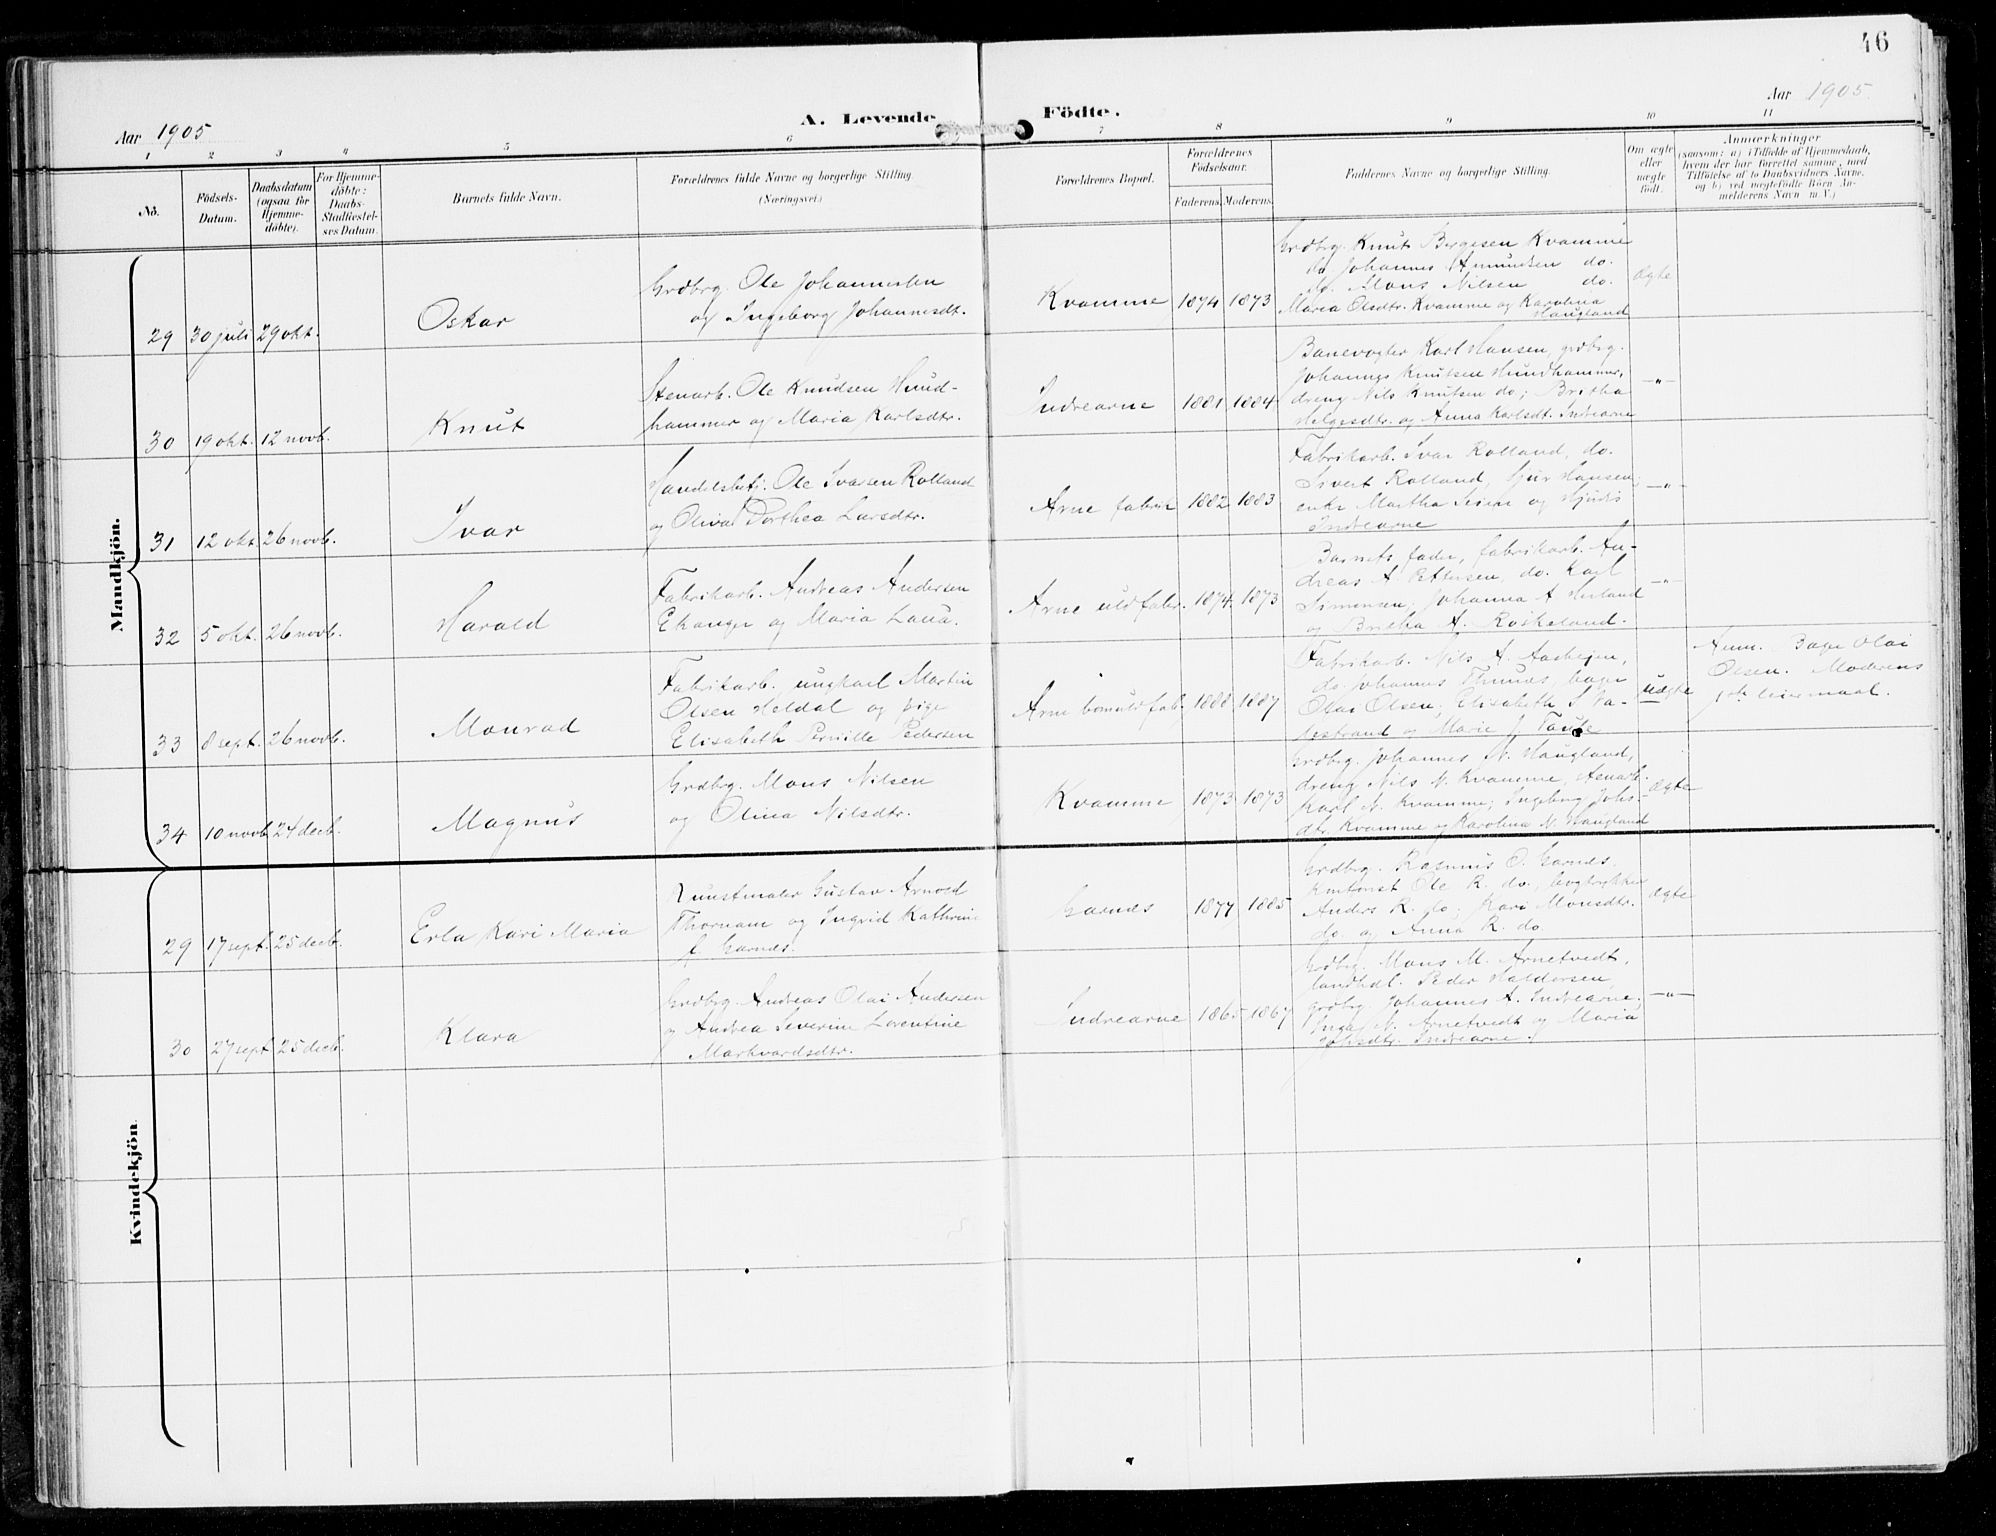 46
Aar 1905
A. Levende Födte.
Aar 1905.
1 2 3 4 5 6 7 8 9 10 11
No.
Födsels-
Datum.
Daabsdatum
(ogsaa for
Hjemme-
döbte).
For Hjemme-
döbte:
Daabs-
Stadfæstel-
ses Datum.
Barnets fulde Navn.
Forældrenes fulde Navne og borgerlige Stilling.
(Næringsvei.)
Forældrenes Bopæl.
Forældrenes
Födselsaar.
Faderens. Moderens.
Faddernes Navne og borgerlige Stilling.
Om ægte
eller
uægte
født.
Anmærkninger
(saasom: a) i Tilfælde af Hjemmedaab,
hvem der har forrettet samme, med
Tilföielse af to Daabsvidners Navne,
og b) ved uægtefödte Börn An-
melderens Navn m. V.)
Mandkjön.
29 30 juli 29 okt.
Oskar
Grdbrg. Ole Johannessen
og Ingeborg Johannesdt.
Kvamme 1874 1873
Grdbrg. Knut Børgesen Kvamme
do. Johannes Amundsen do.
do. Mons Nilsen do.
Maria Olsdtr. Kvamme og Karolina
Haugland
ægte
30 19 okt. 12 novb.
Knut
Stenarb. Ole Knudsen Hund-
hammer og Maria Karlsdtr.
Indrearne 1881 1884
Banevogter Karl Hansen, grdbrg.
Johannes Knutsen Hundhammer,
dreng Nils Knutsen do; Britha
Helgesdtr. og Anna Karlsdt. Indrearne
—"—
31 12 okt. 26 novb.
Ivar
Handelsbetj. Ole Ivarsen Rolland
og Oliva Dorthea Larsdtr.
Arne fabrik 1882 1883
Fabrikarb. Ivar Rolland, do.
Sivert Rolland, Sjur Hansen;
enke Martha og
Indrearne
—"—
32 5 okt. 26 novb.
Harald
Fabrikarb. Andreas Andersen
Ekanger og Maria
Arne uldfabr. 1874 1873
Barnets fader, fabrikarb. An-
dreas A. Pettersen, do. Karl
Simonsen; Johanna A. Herland
og Britha A. Røskeland.
—"—
33 8 sept. 26 novb.
Monrad
Fabrikarb. ungkarl Martin
Olsen Heldal og pige
Elisabeth Pernille Pedersen
Arne bomuldfab. 1888 1887
Fabrikarb. Nils A. Aasheim,
do. Johannes Thunes, bager
Olai Olsen; Elisabeth S. Va-
lestrand og Marie J. Taule
uægte
Anm. Bager Olai
Olsen. Moderens
1ste leiermaal.
34 10 novb. 24 decb.
Magnus
Grdbrg. Mons Nilsen
og Olina Nilsdtr.
Kvamme 1873 1873
Grdbrg. Johannes N. Haugland,
dreng Nils N. Kvamme, stenarb.
Karl N. Kvamme; Ingeborg Johs-
dtr. Kvamme og Karolina N. Haugland
ægte
Kvindekjön.
29 17 sept. 25 decb.
Erla Kari Maria
Kunstmaler Gustav Arnold
Thornam og Ingrid Kathrine
f. Garnes.
Garnes 1877 1885
Grdbrg. Rasmus O. Garnes,
kontorist Ole R. do., bogtrykker
Anders R. do; Kari Monsdtr.
do. og Anna R. do.
ægte
30 27 sept. 25 decb.
Klara
Grdbrg. Andreas Olai Andersen
og Andrea Severine Lorentine
Markvardsdtr.
Indrearne 1865 1867
Grdbrg. Mons M. Arnetvedt,
landhdl. Peder Haldorsen,
grdbrg. Johannes A. Indrearne;
Inga N. Arnetvedt og Maria
Johsdtr. Indrearne.
—"—